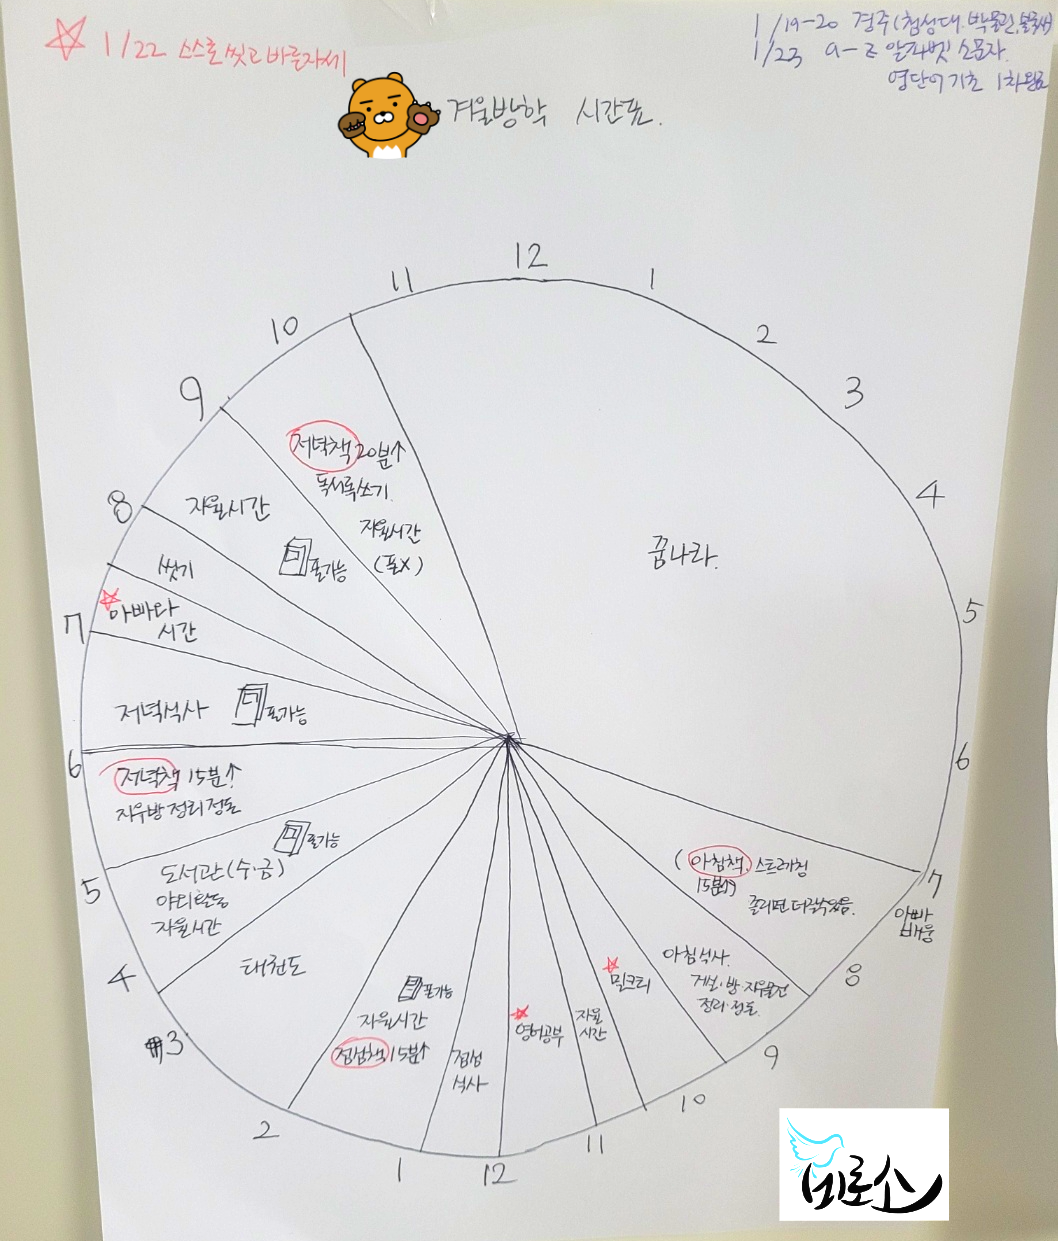 ☆ 1/22 스스로 씻고 바른자세
1/19-20 경주(첨성대, 박물관, 불국사)
1/23 a-z 알파벳 소문자
영단어 기초 1차완료
겨울방학 시간표.
12
1
2
3
4
5
6
7
8
9
10
11
12
1
2
3
4
5
6
7
8
9
10
11
꿈나라.
아빠
배웅
(아침책, 스트레칭
15분↑)
졸리면 더잘수있음.
아침식사.
거실·방·자유물건
정리·정돈.
☆ 밀크티
자율
시간
☆ 영어공부
점심
식사
폰가능
자율시간
점심책 15분↑
태권도
폰가능
도서관(수·금)
야외활동
자율시간
저녁책 15분↑
자유방 정리정돈
저녁식사 폰가능
☆ 아빠다
시간
씻기
자율시간
폰가능
저녁책 20분↑
독서록쓰기.
자율시간
(폰X)
비로소